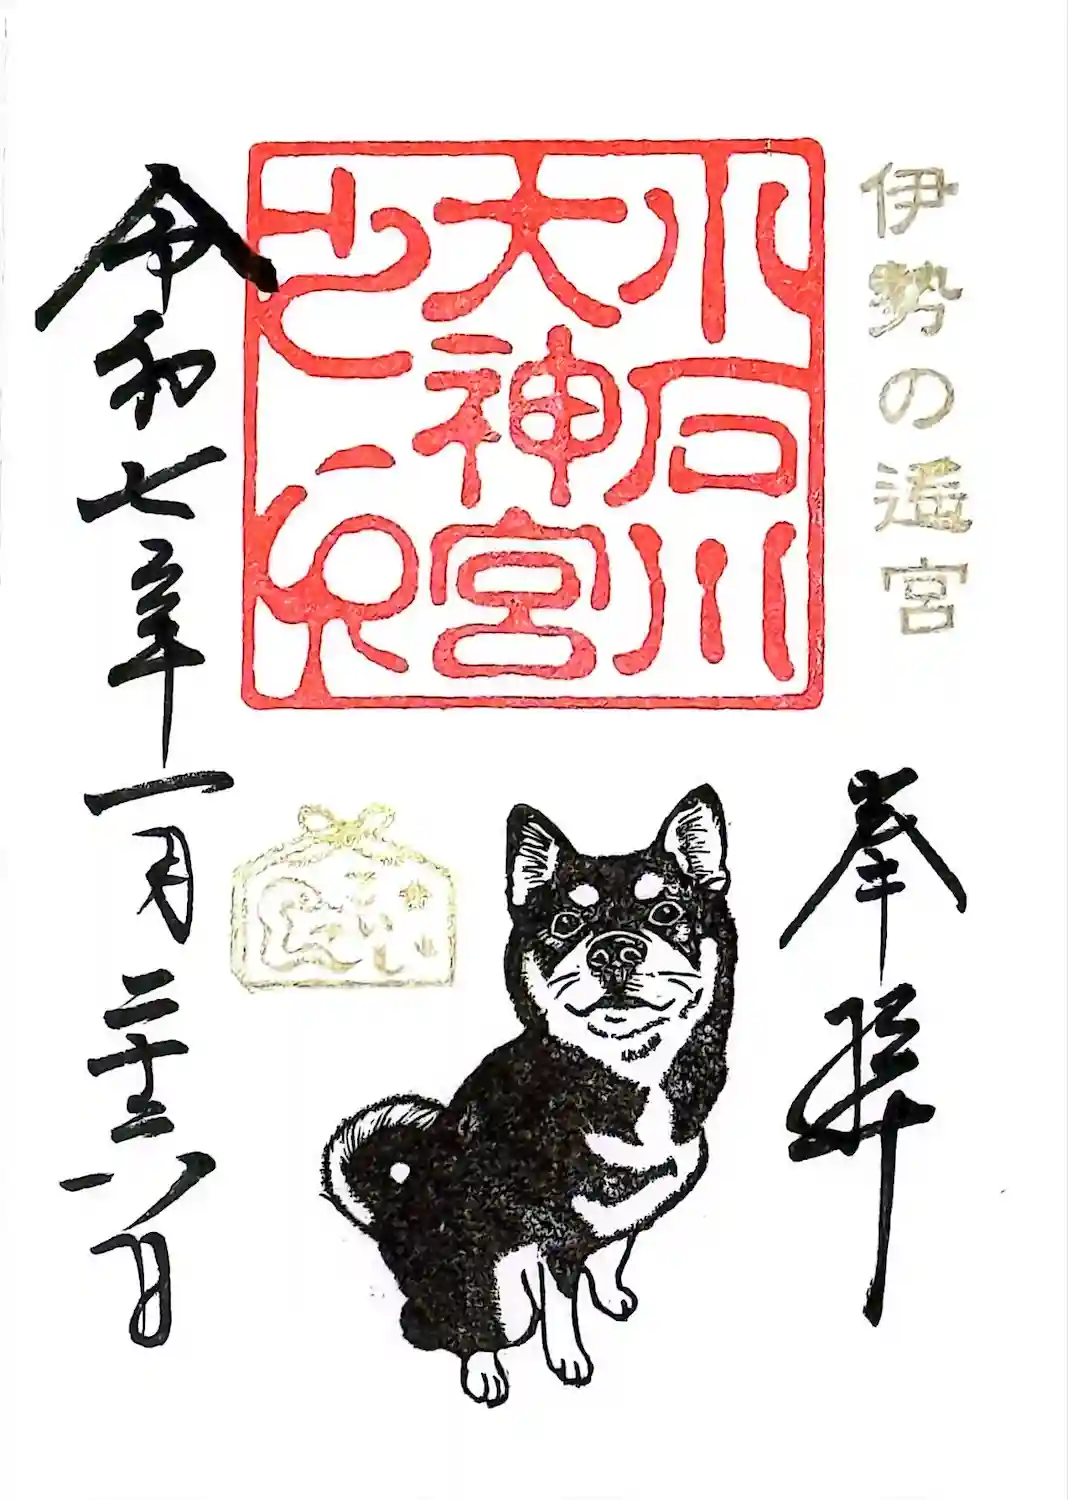 伊勢の遥宮
小石川
大神宮
之印
奉拝
令和七年一月二十六日